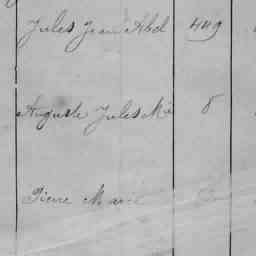 Jules Jean Abel 449
Auguste Jules Me 8
Pierre Marie